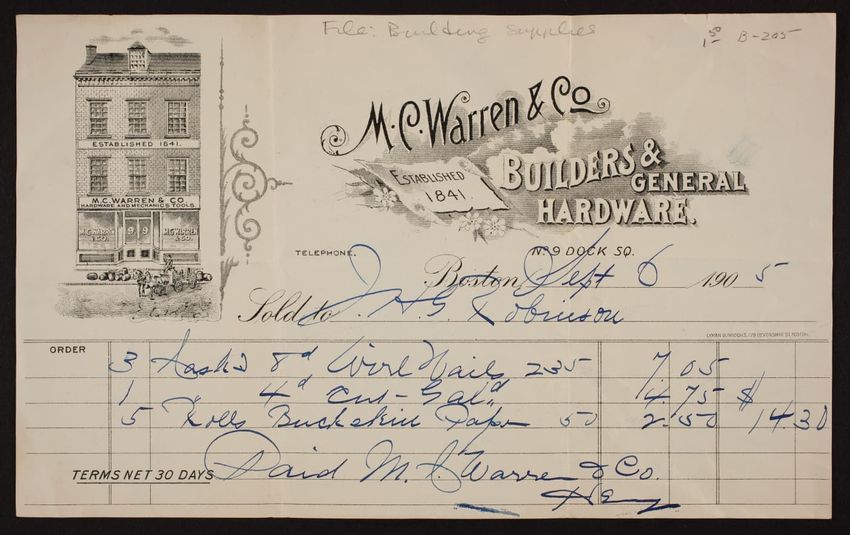 File: Building Supplies
1 50 B-205
M.C. Warren & Co.
ESTABLISHED 1841.
BUILDERS & GENERAL HARDWARE.
ESTABLISHED 1841.
M.C. WARREN & CO.
HARDWARE AND MECHANICS TOOLS.
M.C. WARREN & CO. 9 9 M.C. WARREN & CO.
TELEPHONE. No 9 DOCK SQ.
Boston, Sept 6 1905
Sold to J. H. G. Robinson
LYMAN D. BROOKS, 178 DEVONSHIRE ST. BOSTON.
ORDER 3 Kegs 8d Wire Nails 235 7 05
1 4d Cut - Gal'd 4.75 $
5 Rolls Buckskin Paper 50 2.50 14.30
TERMS NET 30 DAYS Paid M. C. Warren & Co.